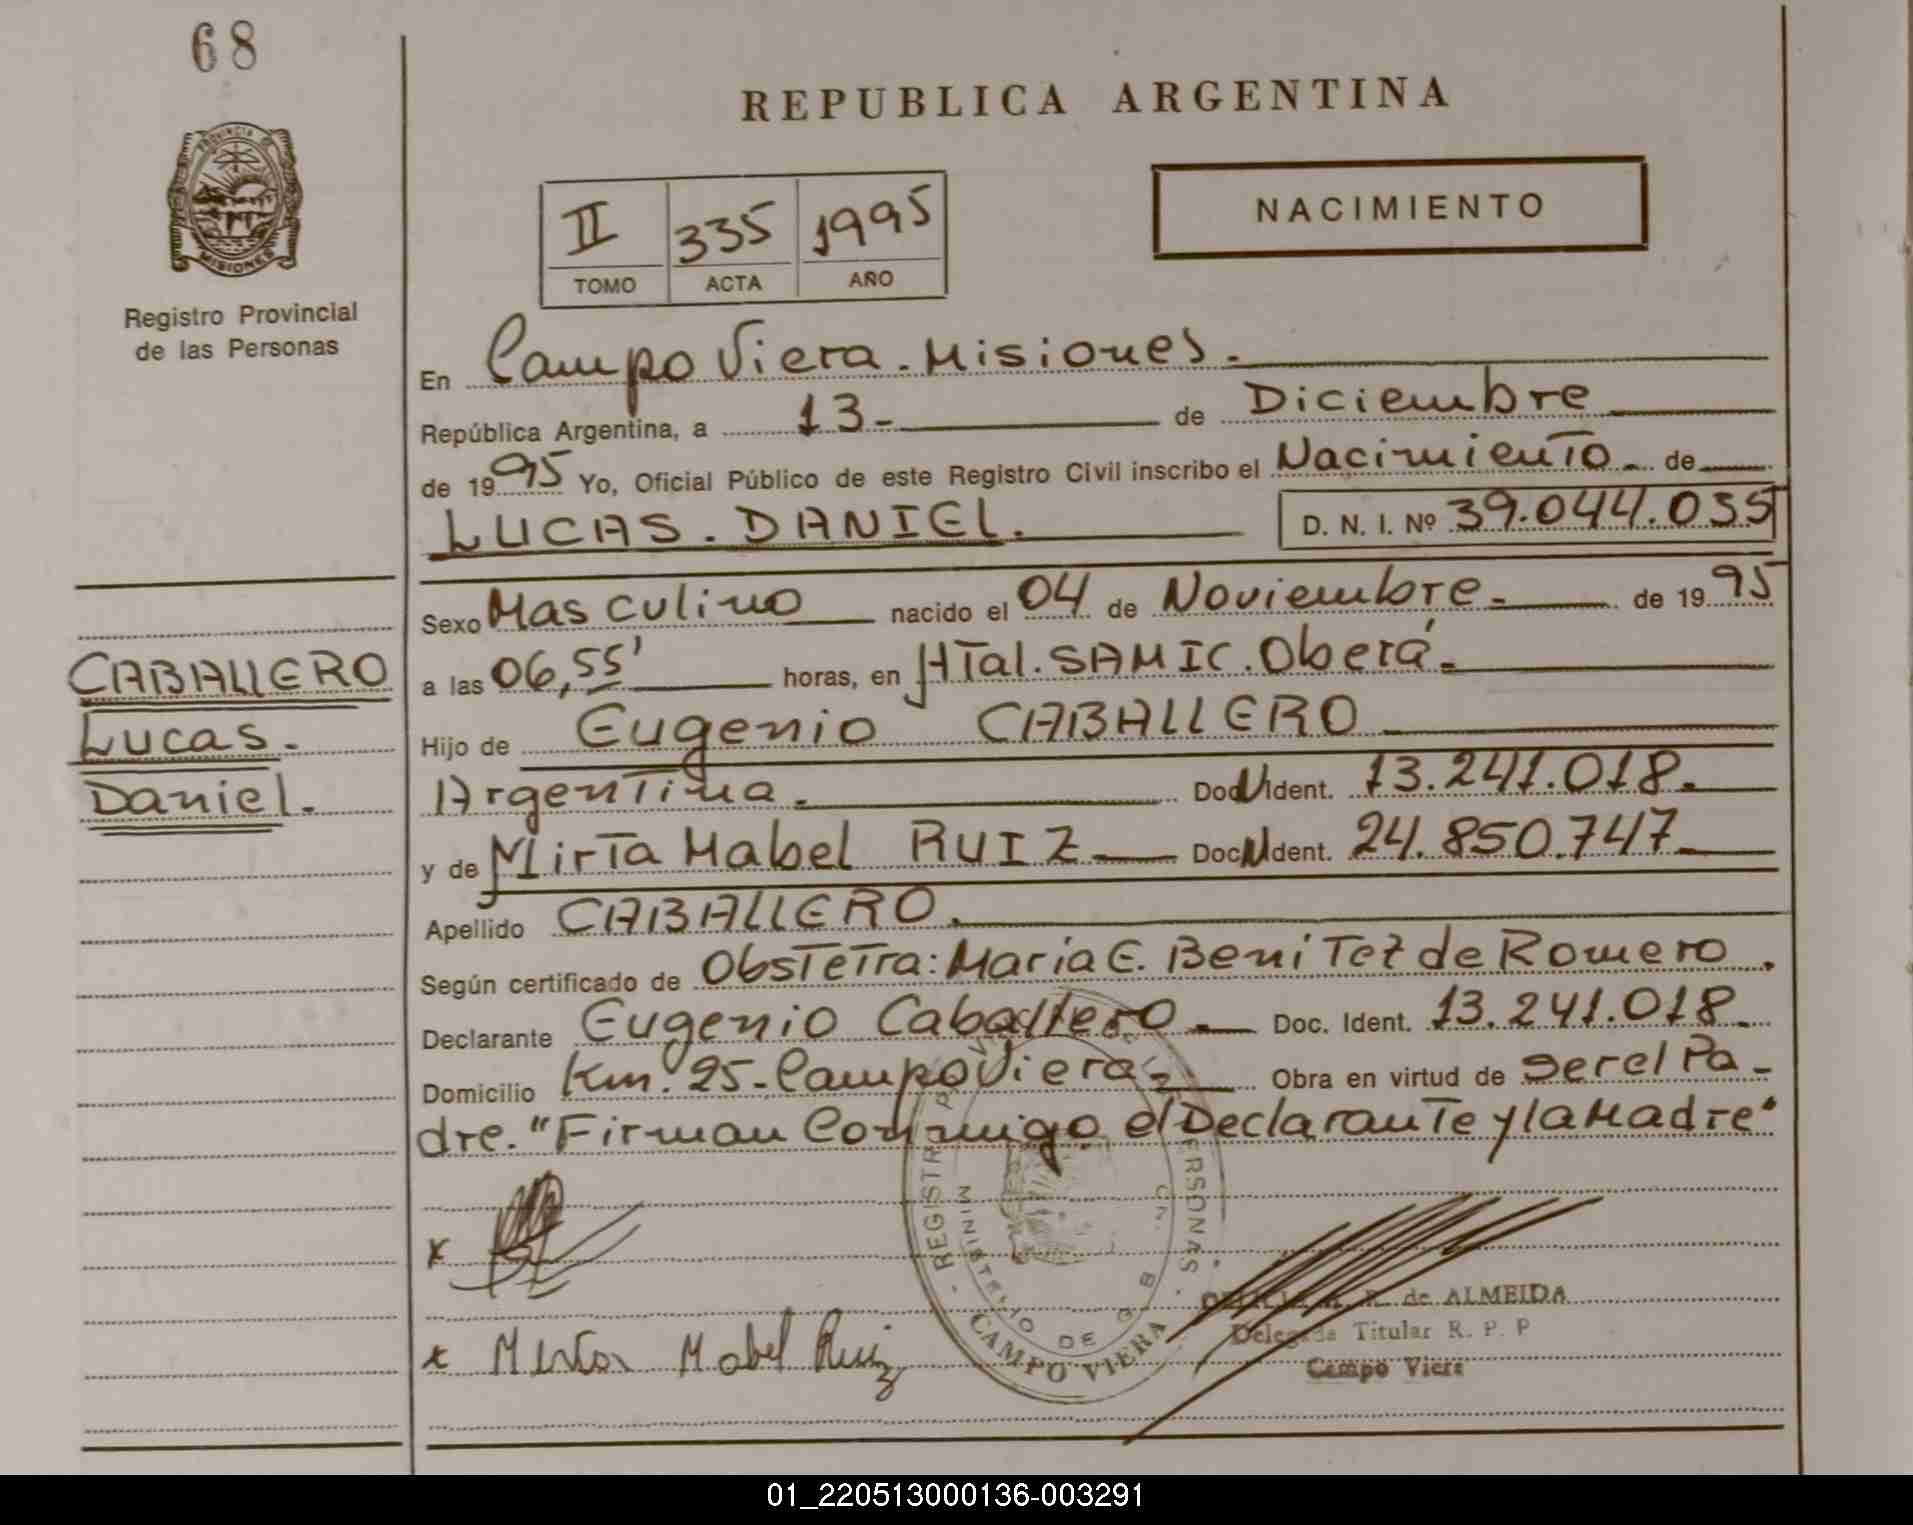 68
PROVINCIA DE
MISIONES
Registro Provincial
de las Personas
REPUBLICA ARGENTINA
NACIMIENTO
II 335 1995
TOMO ACTA AÑO
En Campo Viera. Misiones.
República Argentina, a 13- de Diciembre
de 1995 Yo, Oficial Público de este Registro Civil inscribo el Nacimiento de
LUCAS. DANIEL. D. N. I. Nº 39.044.035
Sexo Masculino nacido el 04 de Noviembre.- de 1995
a las 06,55' horas, en HTal. SAMIC. Oberá.
Hijo de Eugenio CABALLERO
Argentina. Doc. Ident. 13.241.018.
y de Mirta Mabel RUIZ Doc. Ident. 24.850.747
Apellido CABALLERO.
Según certificado de Obstetra: Maria E. Benitez de Romero.
Declarante Eugenio Caballero.- Doc. Ident. 13.241.018.
Domicilio Km. 25- Campo Viera- Obra en virtud de ser el Pa-
dre. "Firman Conmigo el Declarante y la Madre"
CABALLERO
Lucas.
Daniel.
x
x Mirta Mabel Ruiz
REGISTR PERSONAS
MINISTERIO DE GOB
CAMPO VIERA
de ALMEIDA
Delegada Titular R. P. P
Campo Viera
01_220513000136-003291